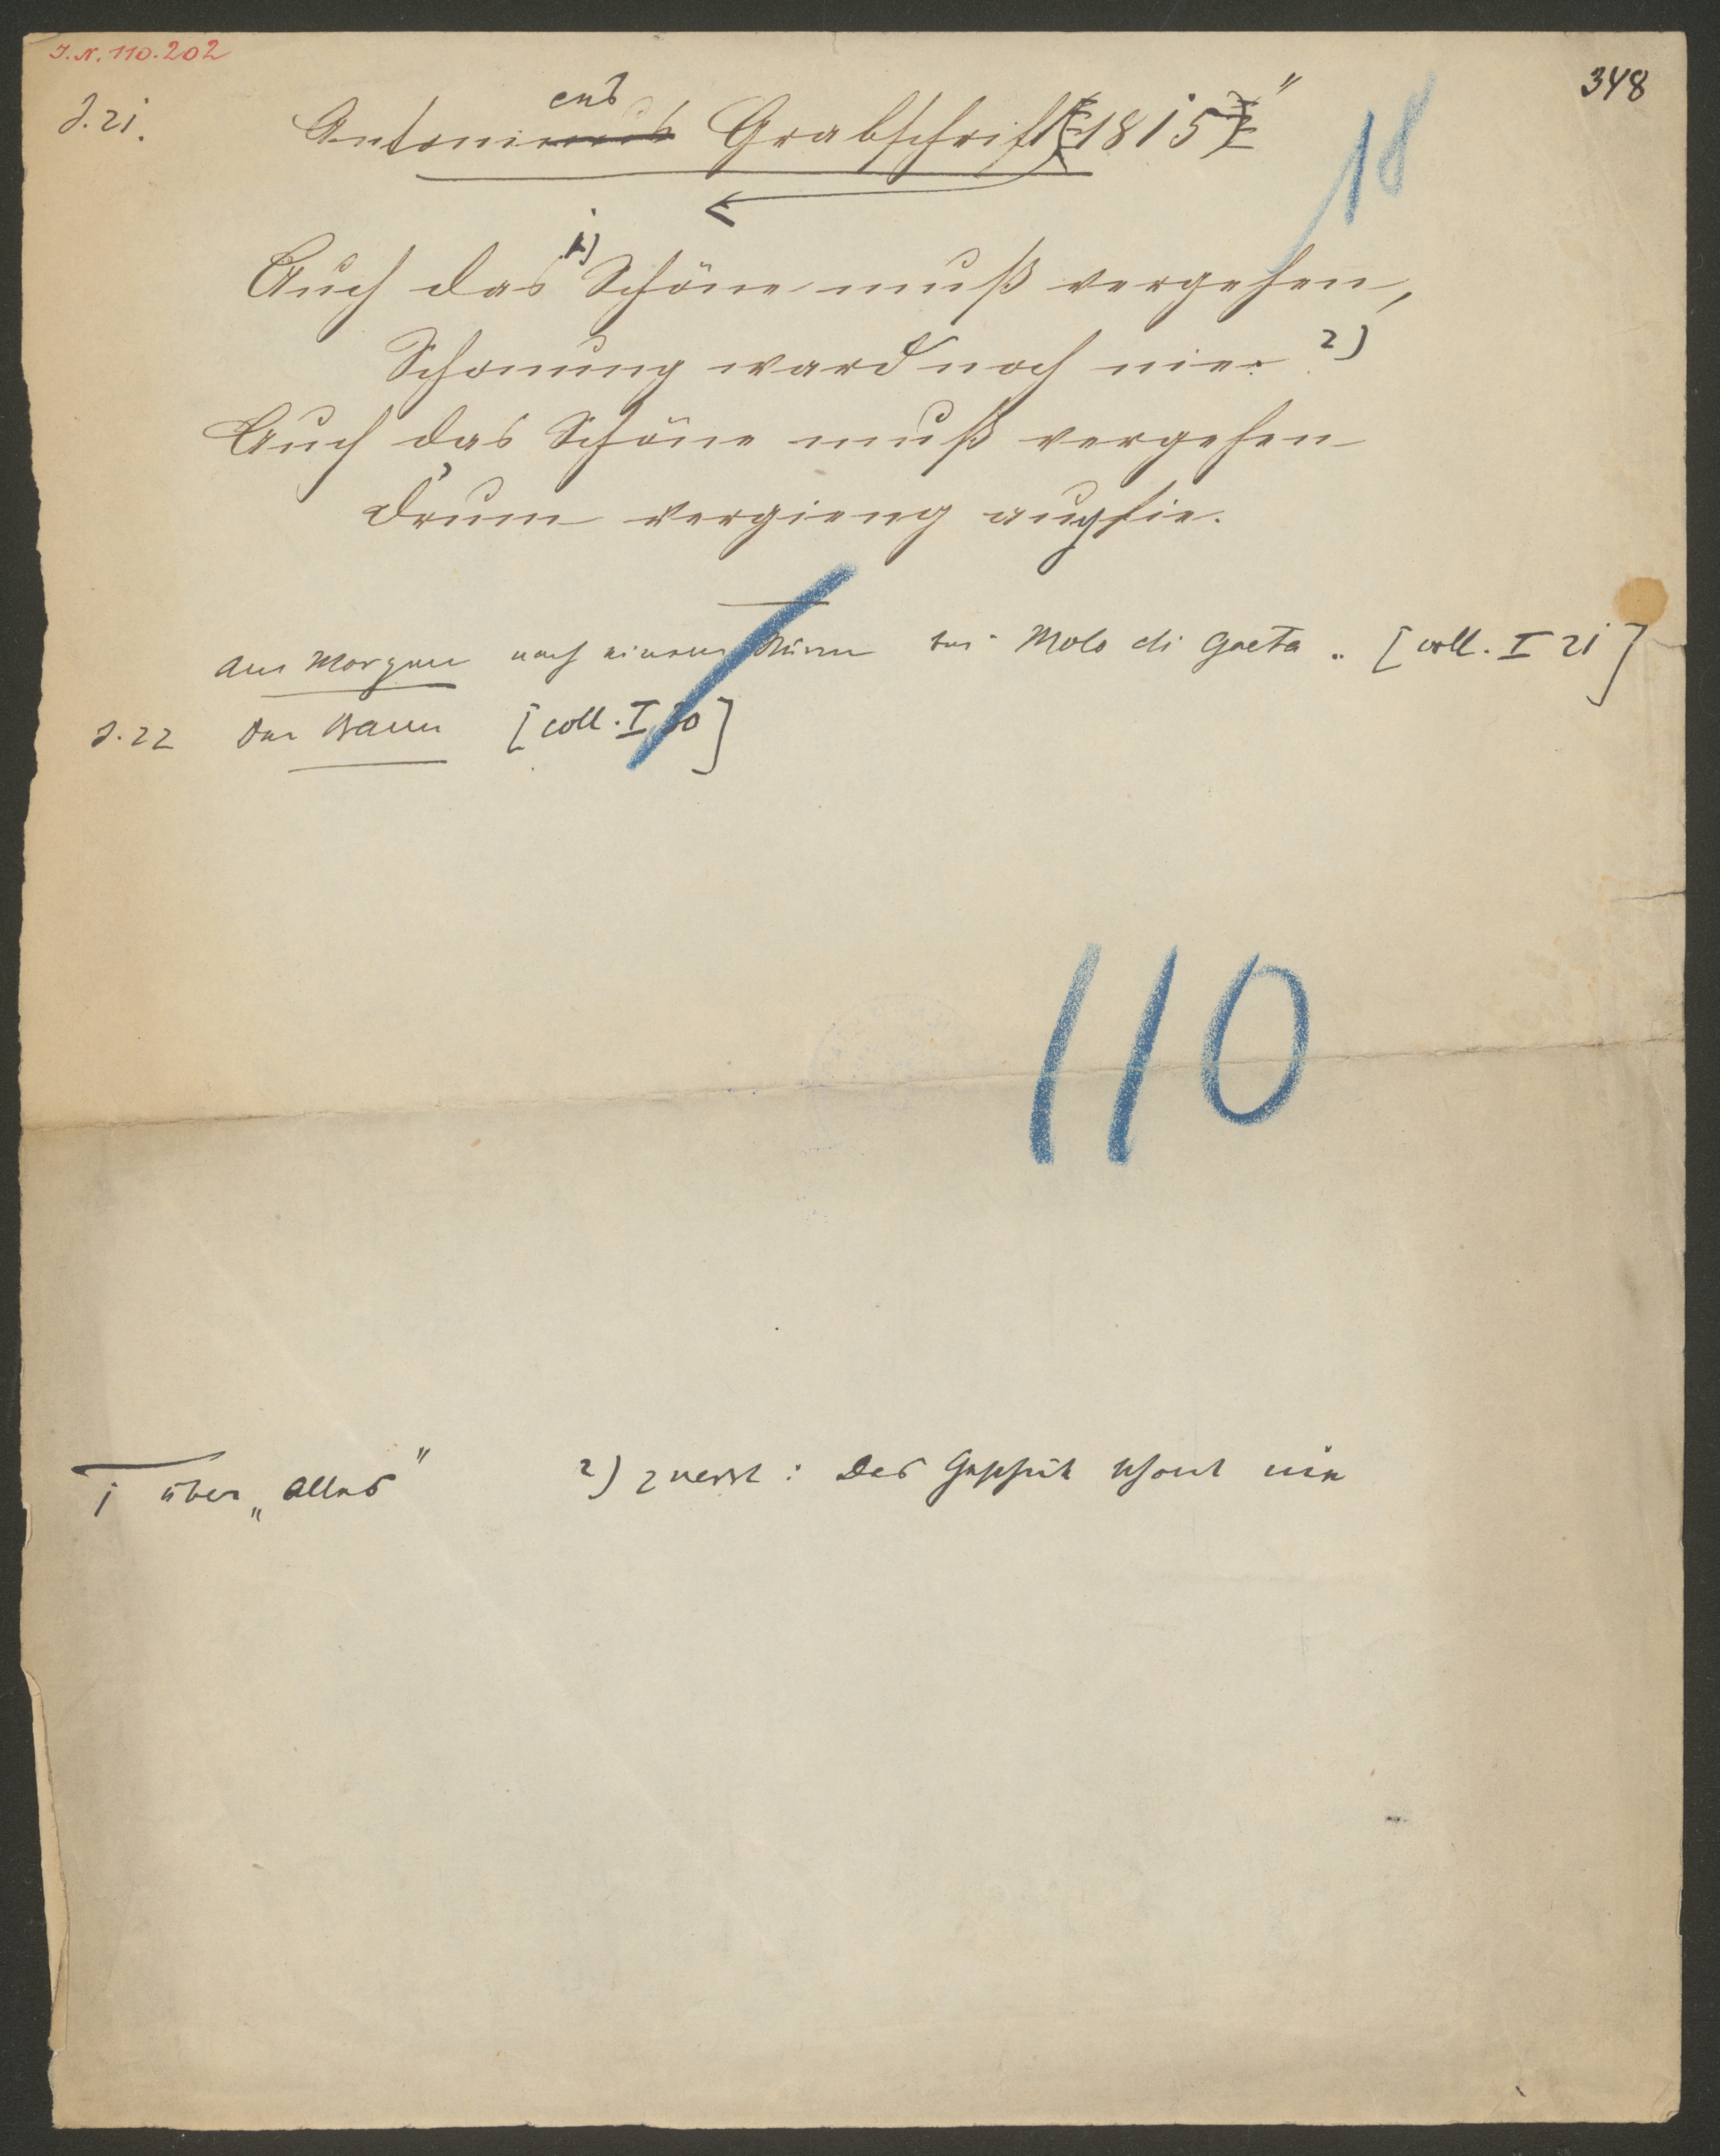 J. N. 110.202
348
S. 21.
ens
Antoninens Grabschrift (1815)"
18
Auch das 1) Schöne muß vergehen,
Schonung ward noch nie. 2)
Auch das Schöne muß vergehen
Drum vergieng auch sie.
Am Morgen nach einem Sturm bei Molo di Gaeta. [coll. I 21]
S. 22 Der Bann [coll. I 30]
110
1 über „Alles"
2) zuerst: Das Geschick schont nie